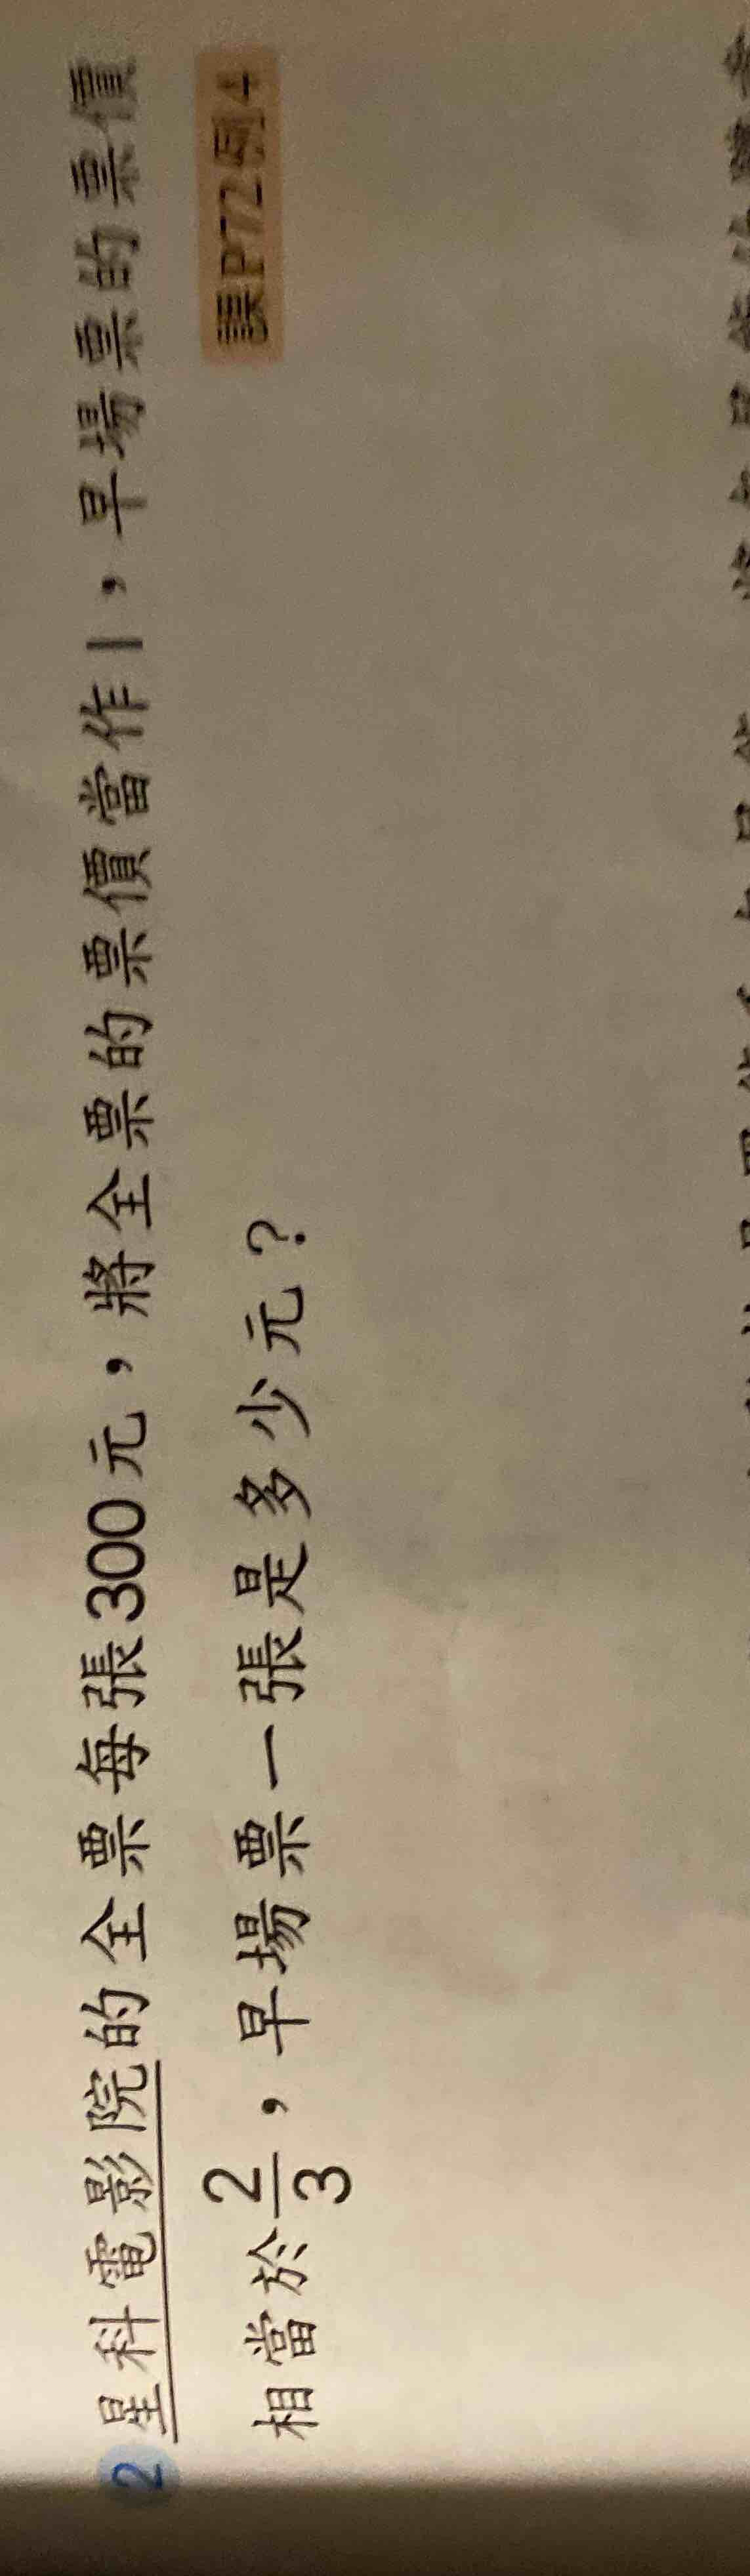 2 星科電影院的全票每張300元，將全票的票價當作1，早場票的票價
相當於2/3，早場票一張是多少元？
課P72例4